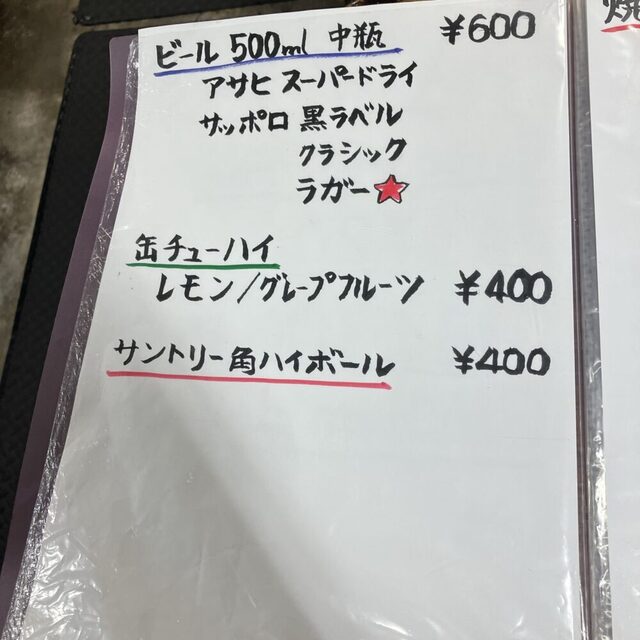 ビール 500ml 中瓶 ¥600
アサヒ スーパードライ
サッポロ 黒ラベル
クラシック
ラガー★
缶チューハイ
レモン/グレープフルーツ ¥400
サントリー角ハイボール ¥400
焼